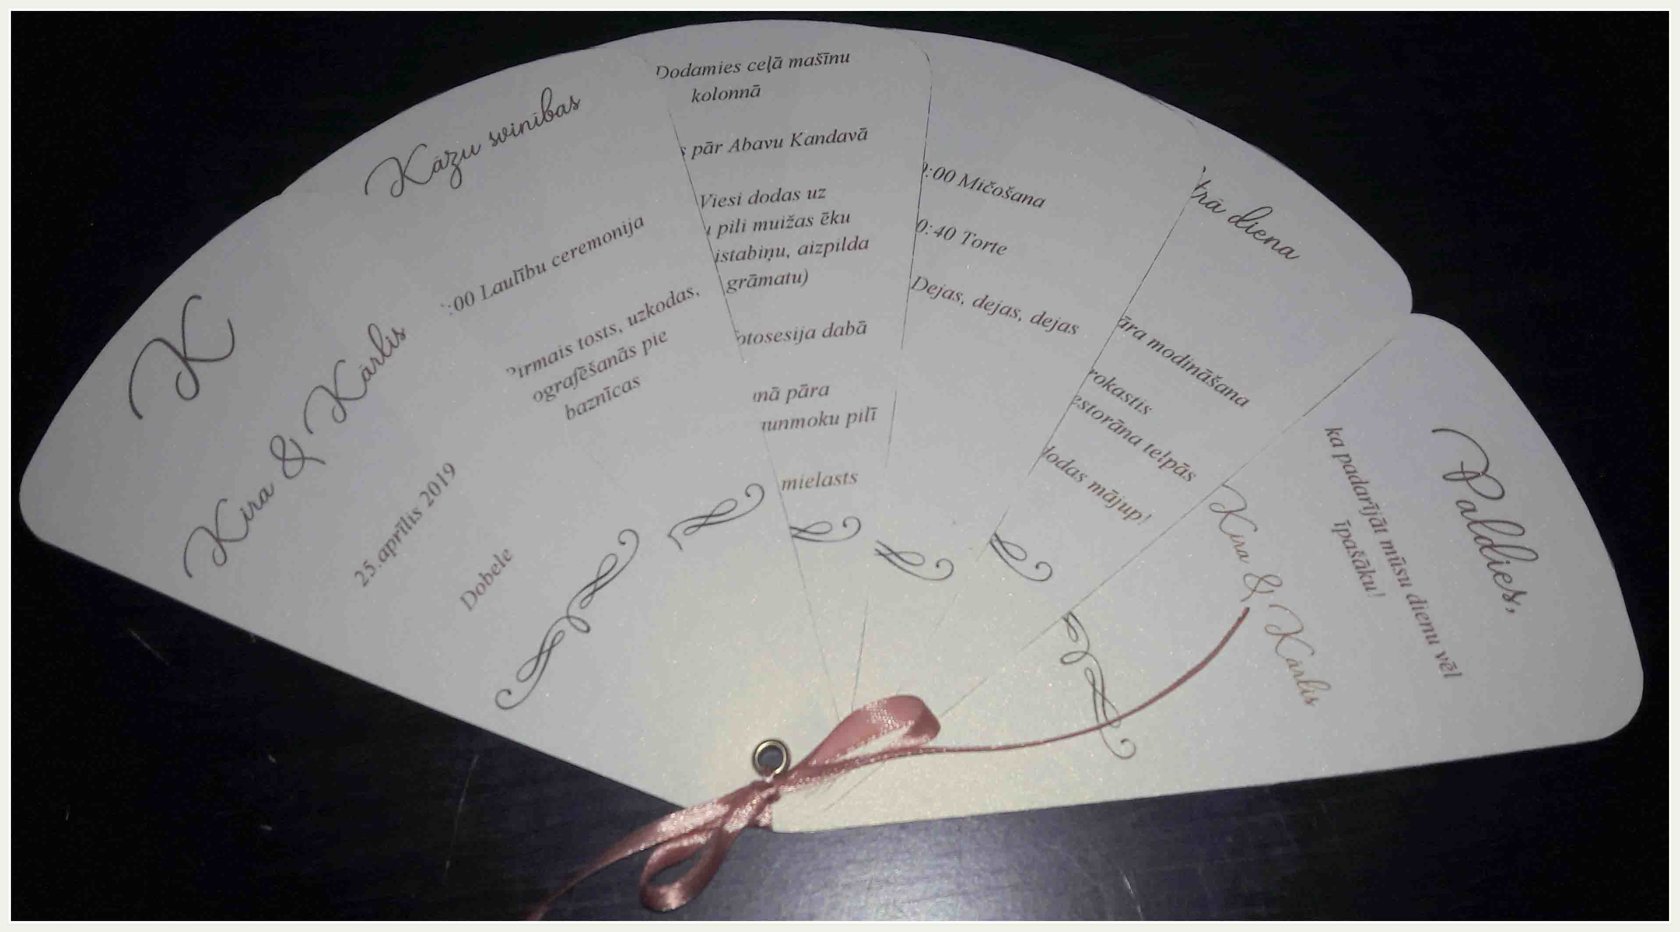 K
Kira & Kārlis
25.aprīlis 2019
Dobele
Kāzu svinības
:00 Laulību ceremonija
Pirmais tosts, uzkodas,
ografēšanās pie
baznīcas
Dodamies ceļā mašīnu
kolonnā
s pār Abavu Kandavā
Viesi dodas uz
u pili muižas ēku
istabiņu, aizpilda
grāmatu)
otosesija dabā
mā pāra
unmoku pilī
mielasts
:00 Mičošana
0:40 Torte
Dejas, dejas, dejas
trā diena
āra modināšana
rokastis
estorāna telpās
dodas mājup!
Paldies,
ka padarījāt mūsu dienu vēl
īpašāku!
Kira & Kārlis